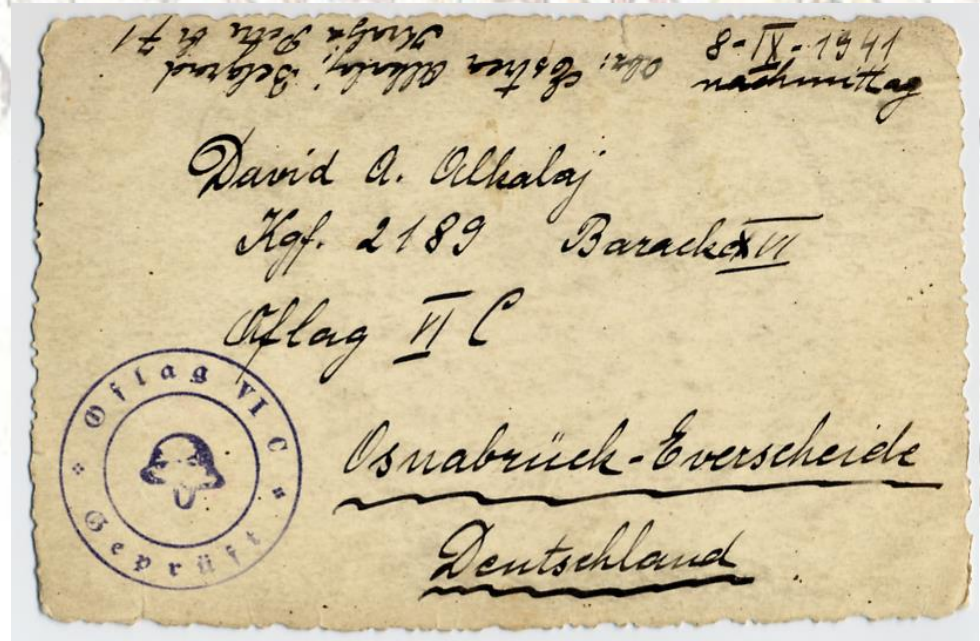 8-IX-1941
nachmittag
Abs: Estrea Alkalaj, Belgrad
Kralja Petra br 71
David A. Alkalaj
Kgf. 2189 Baracke XVI
Oflag VI C
Osnabrück-Everscheide
Deutschland
Oflag VI C
Geprüft